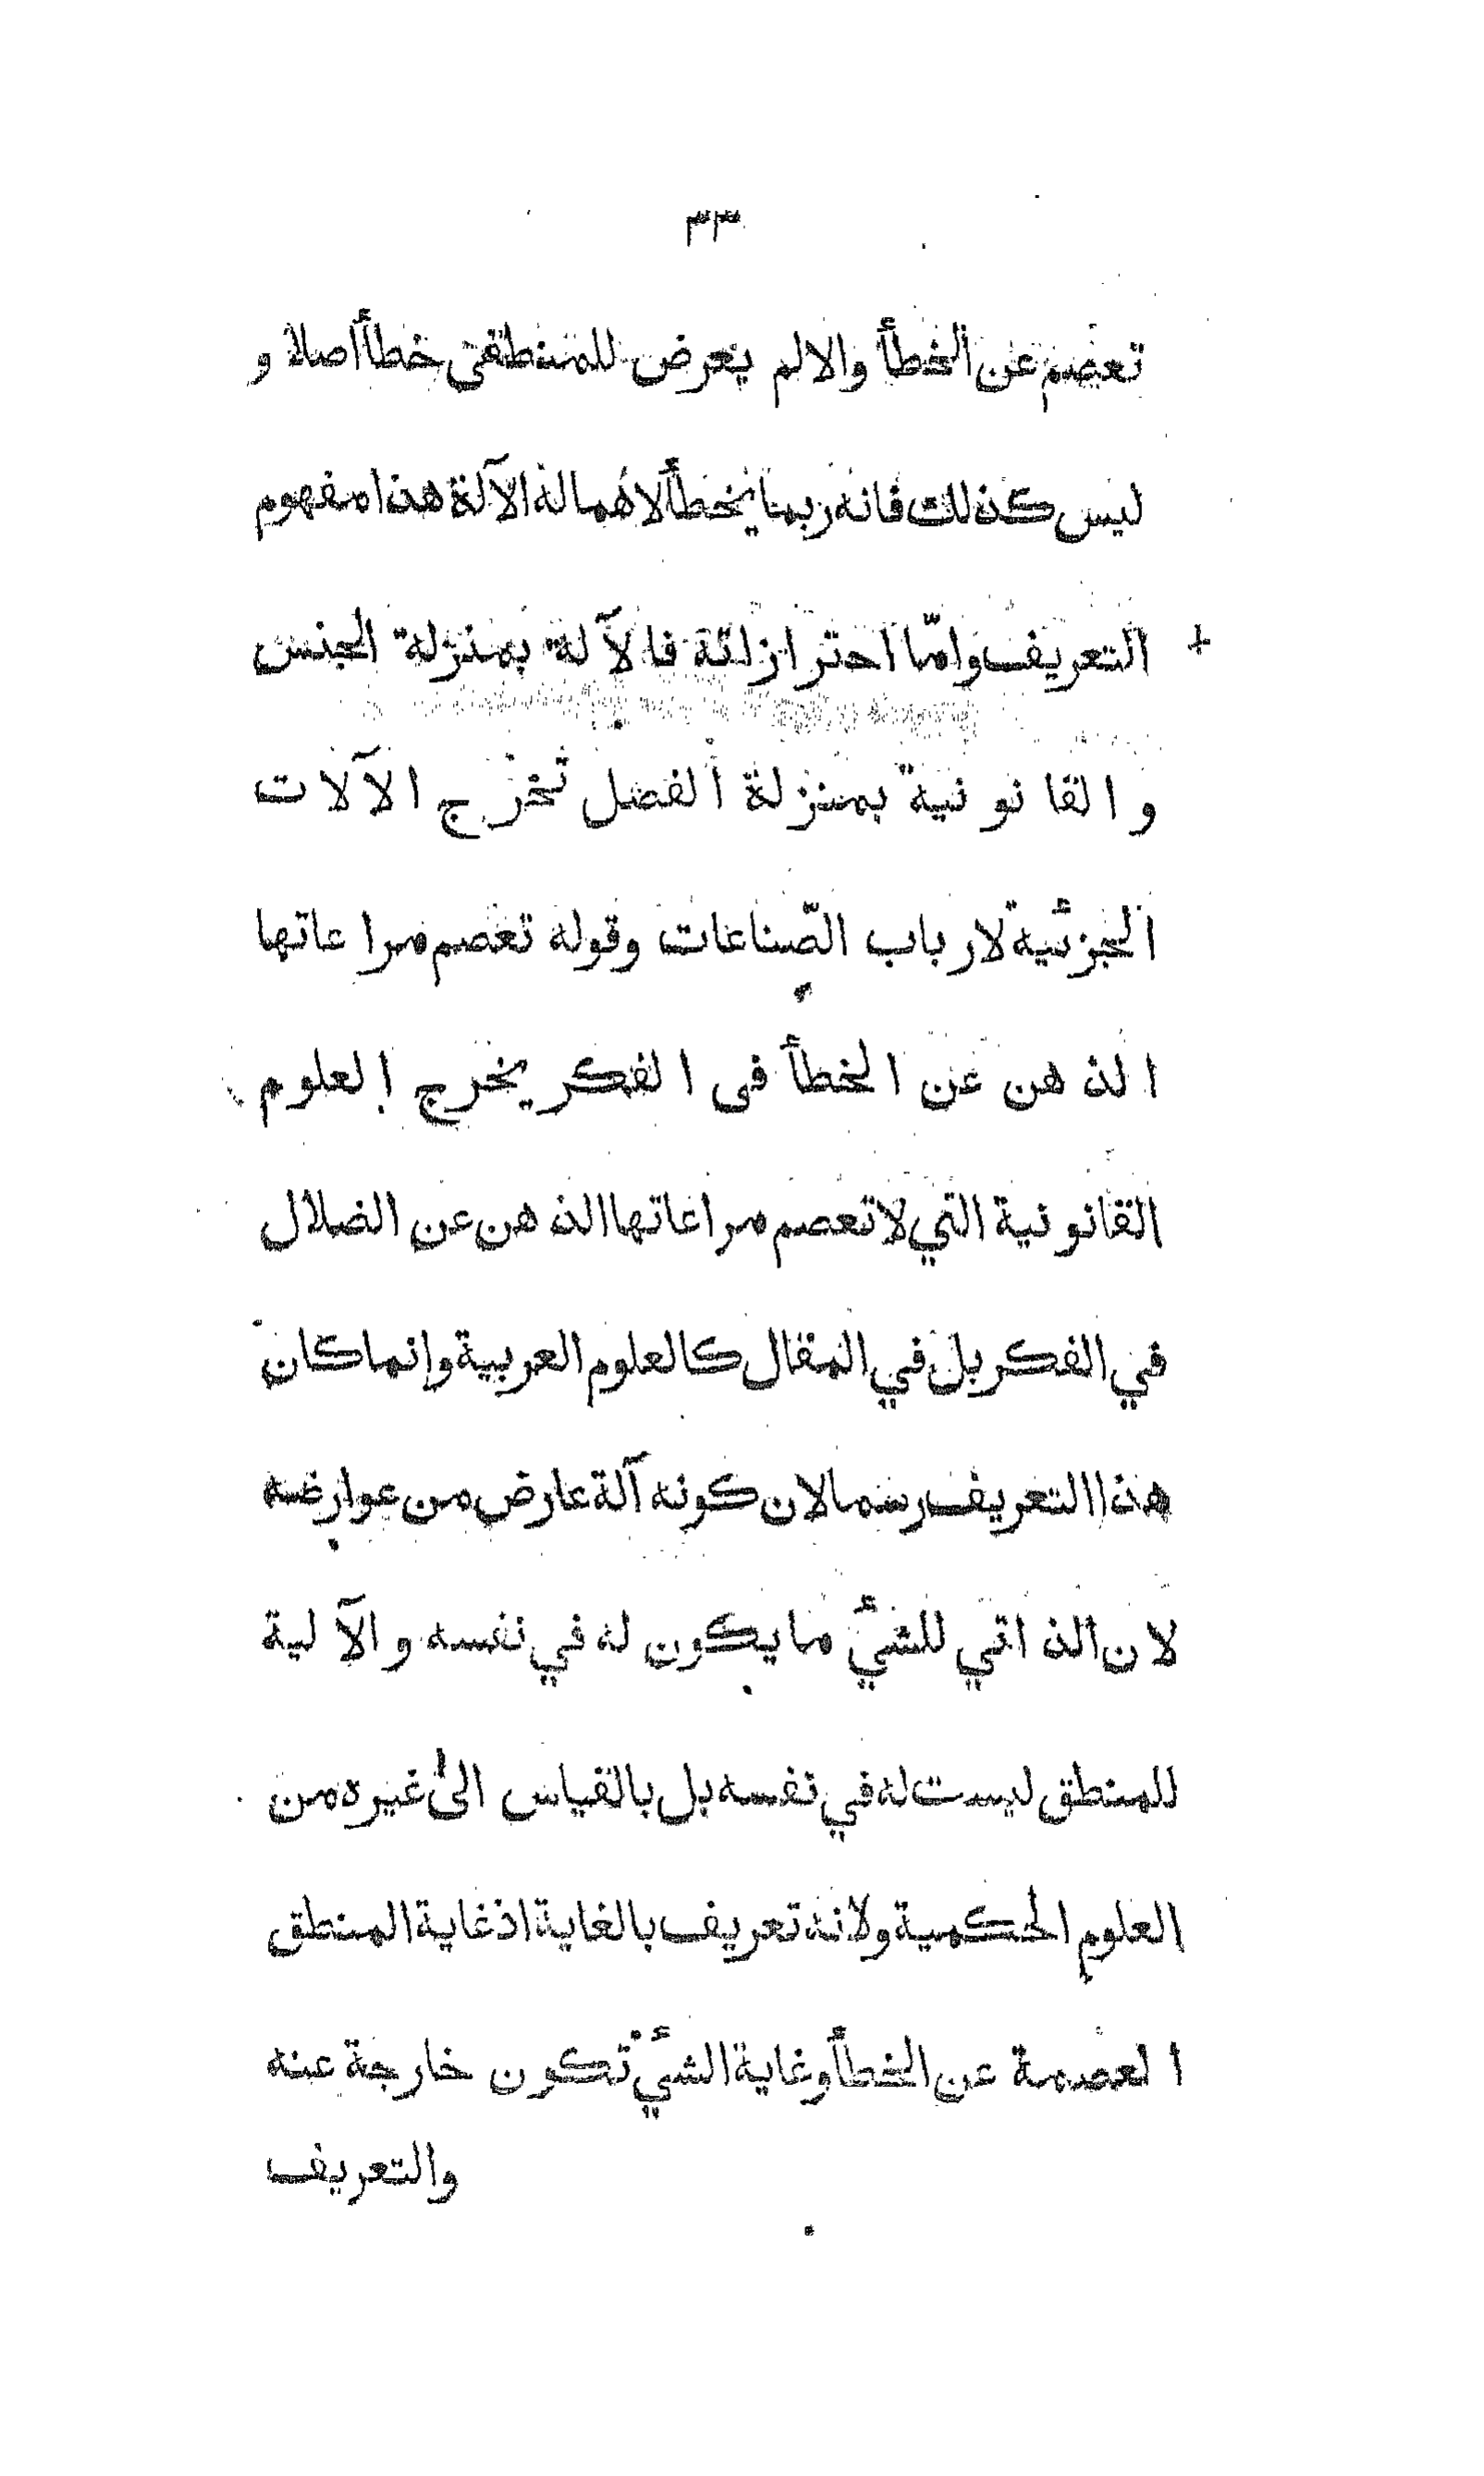 ٣٣
تعصم عن الخطأ والالم يعرض للمنطقى خطأ اصلا و
ليس كذلك فانه ربما يخطأ لاهماله الآلة هذا مفهوم
التعريف وامّا احترازاته فالآلة بمنزلة الجنس
والقانونية بمنزلة الفصل تخرج الآلات
الجزئية لارباب الصّناعات وقوله تعصم مراعاتها
الذهن عن الخطأ فى الفكر يخرج العلوم
القانونية التي لا تعصم مراعاتها الذهن عن الضلال
في الفكر بل في المقال كالعلوم العربية وإنما كان
هذا التعريف رسما لان كونه آلة عارض من عوارضه
لان الذاتي للشئ ما يكون له في نفسه والآلية
للمنطق ليست له في نفسه بل بالقياس الى غيره من
العلوم الحكمية ولانه تعريف بالغاية اذ غاية المنطق
العصمة عن الخطأ وغاية الشئ تكون خارجة عنه
والتعريف